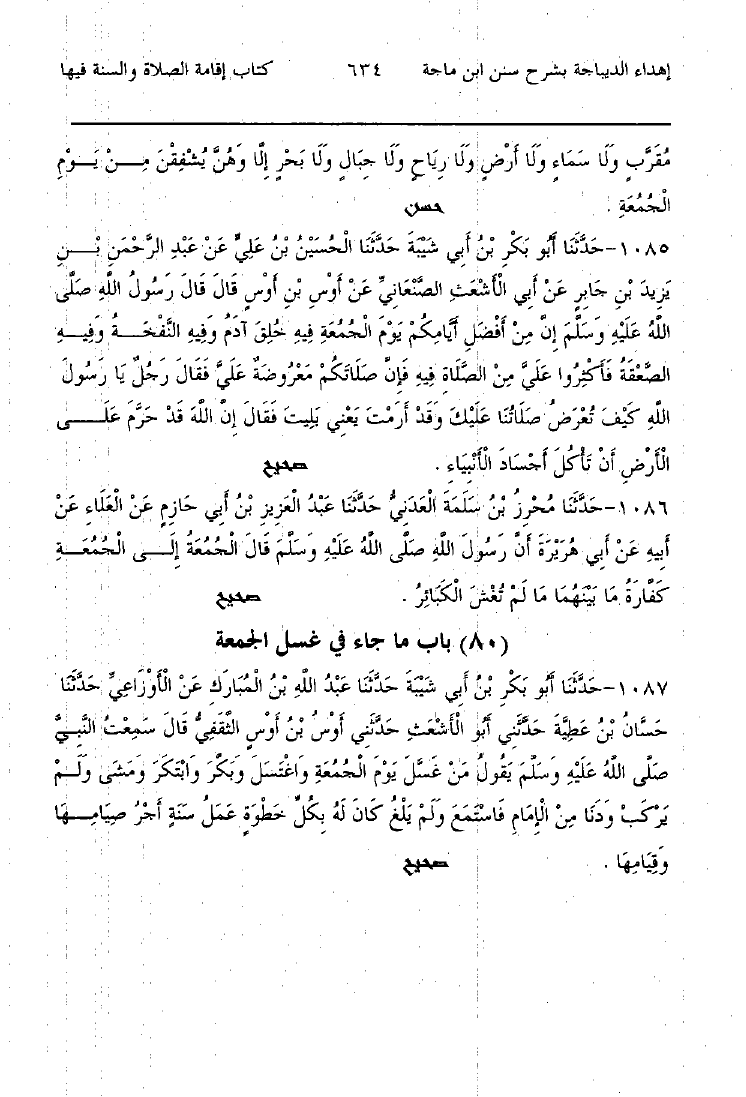 إهداء الديباجة بشرح سنن ابن ماجة ٦٣٤ كتاب إقامة الصلاة والسنة فيها
مُقَرَّبٍ وَلَا سَمَاءٍ وَلَا أَرْضٍ وَلَا رِيَاحٍ وَلَا جِبَالٍ وَلَا بَحْرٍ إِلَّا وَهُنَّ يُشْفِقْنَ مِـــنْ يَـــوْمِ
الْجُمُعَةِ . حسن
١٠٨٥-حَدَّثَنَا أَبُو بَكْرِ بْنُ أَبِي شَيْبَةَ حَدَّثَنَا الْحُسَيْنُ بْنُ عَلِيٍّ عَنْ عَبْدِ الرَّحْمَنِ بْـــنِ
يَزِيدَ بْنِ جَابِرٍ عَنْ أَبِي الْأَشْعَثِ الصَّنْعَانِيِّ عَنْ أَوْسِ بْنِ أَوْسٍ قَالَ قَالَ رَسُولُ اللهِ صَلَّى
اللهُ عَلَيْهِ وَسَلَّمَ إِنَّ مِنْ أَفْضَلِ أَيَّامِكُمْ يَوْمَ الْجُمُعَةِ فِيهِ خُلِقَ آدَمُ وَفِيهِ النَّفْخَـــةُ وَفِيـــهِ
الصَّعْقَةُ فَأَكْثِرُوا عَلَيَّ مِنْ الصَّلَاةِ فِيهِ فَإِنَّ صَلَاتَكُمْ مَعْرُوضَةٌ عَلَيَّ فَقَالَ رَجُلٌ يَا رَسُولَ
اللهِ كَيْفَ تُعْرَضُ صَلَاتُنَا عَلَيْكَ وَقَدْ أَرَمْتَ يَعْنِي بَلِيتَ فَقَالَ إِنَّ اللهَ قَدْ حَرَّمَ عَلَـــى
الْأَرْضِ أَنْ تَأْكُلَ أَجْسَادَ الْأَنْبِيَاءِ . صحيح
١٠٨٦-حَدَّثَنَا مُحْرِزُ بْنُ سَلَمَةَ الْعَدَنِيُّ حَدَّثَنَا عَبْدُ الْعَزِيزِ بْنُ أَبِي حَازِمٍ عَنْ الْعَلَاءِ عَنْ
أَبِيهِ عَنْ أَبِي هُرَيْرَةَ أَنَّ رَسُولَ اللهِ صَلَّى اللهُ عَلَيْهِ وَسَلَّمَ قَالَ الْجُمُعَةُ إِلَـــى الْجُمُعَـــةِ
كَفَّارَةُ مَا بَيْنَهُمَا مَا لَمْ تُغْشَ الْكَبَائِرُ . صحيح
(٨٠) باب ما جاء في غسل الجمعة
١٠٨٧-حَدَّثَنَا أَبُو بَكْرِ بْنُ أَبِي شَيْبَةَ حَدَّثَنَا عَبْدُ اللهِ بْنُ الْمُبَارَكِ عَنْ الْأَوْزَاعِيِّ حَدَّثَنَا
حَسَّانُ بْنُ عَطِيَّةَ حَدَّثَنِي أَبُو الْأَشْعَثِ حَدَّثَنِي أَوْسُ بْنُ أَوْسٍ الثَّقَفِيُّ قَالَ سَمِعْتُ النَّبِيَّ
صَلَّى اللهُ عَلَيْهِ وَسَلَّمَ يَقُولُ مَنْ غَسَّلَ يَوْمَ الْجُمُعَةِ وَاغْتَسَلَ وَبَكَّرَ وَابْتَكَرَ وَمَشَى وَلَـمْ
يَرْكَبْ وَدَنَا مِنْ الْإِمَامِ فَاسْتَمَعَ وَلَمْ يَلْغُ كَانَ لَهُ بِكُلِّ خَطْوَةٍ عَمَلُ سَنَةٍ أَجْرُ صِيَامِـــهَا
وَقِيَامِهَا . صحيح